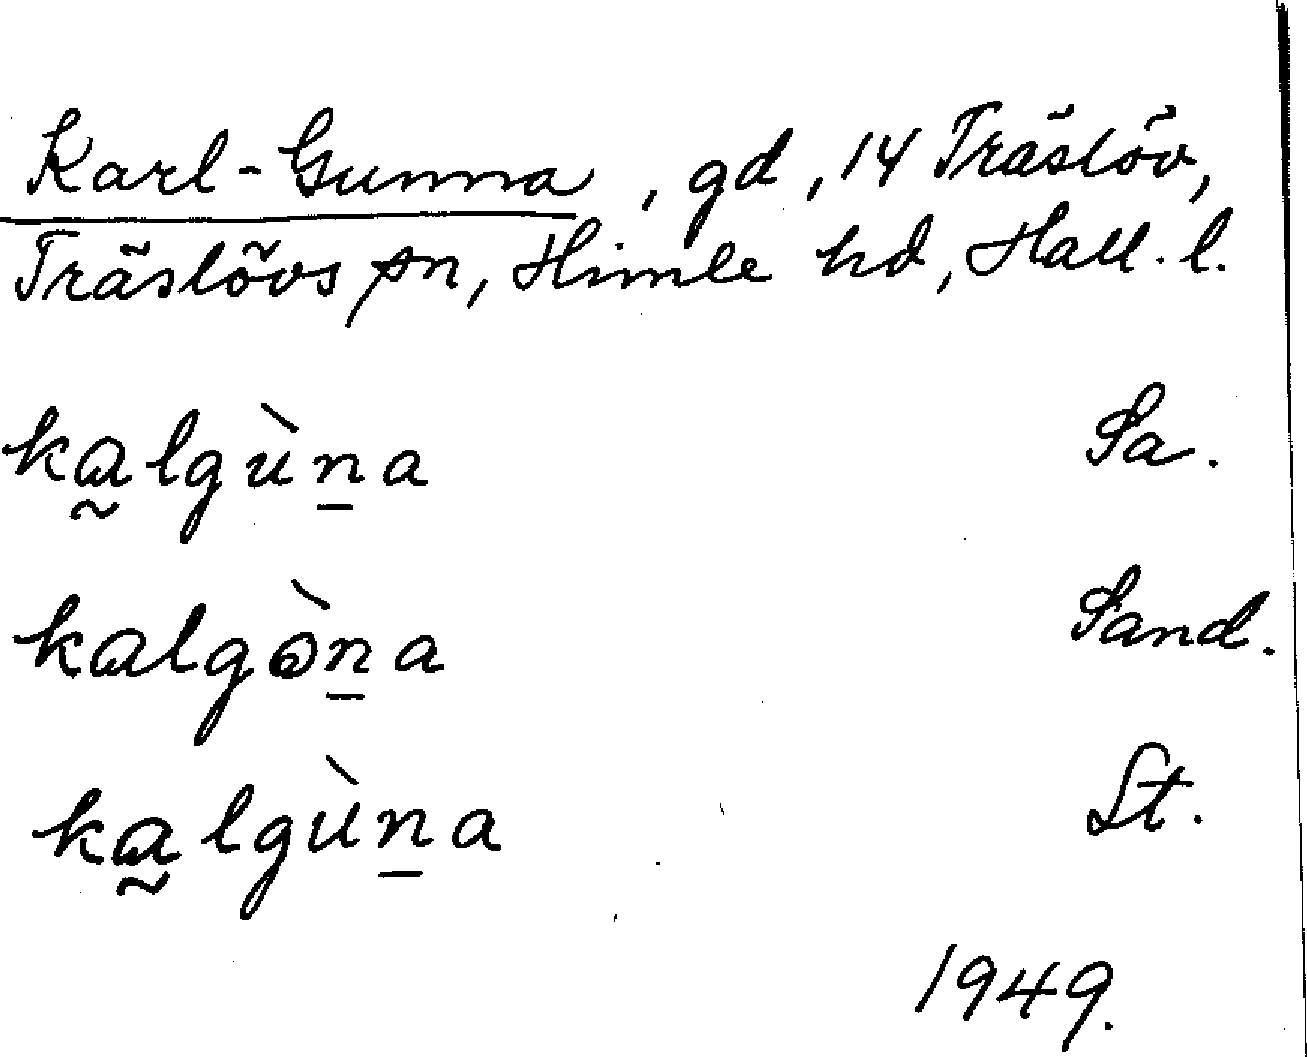 Karl-Gunna, gd, 14 Träslöv,
Träslövs sn, Himle hd, Hall. l.
ka̰lgùn̲a Sa.
kalgòn̲a Sand.
ka̰lgùn̲a St.
1949.